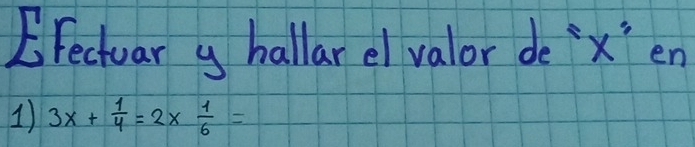 Efectuar y hallar el valor de "x" en
1) 3x + 1/4 = 2x 1/6 =